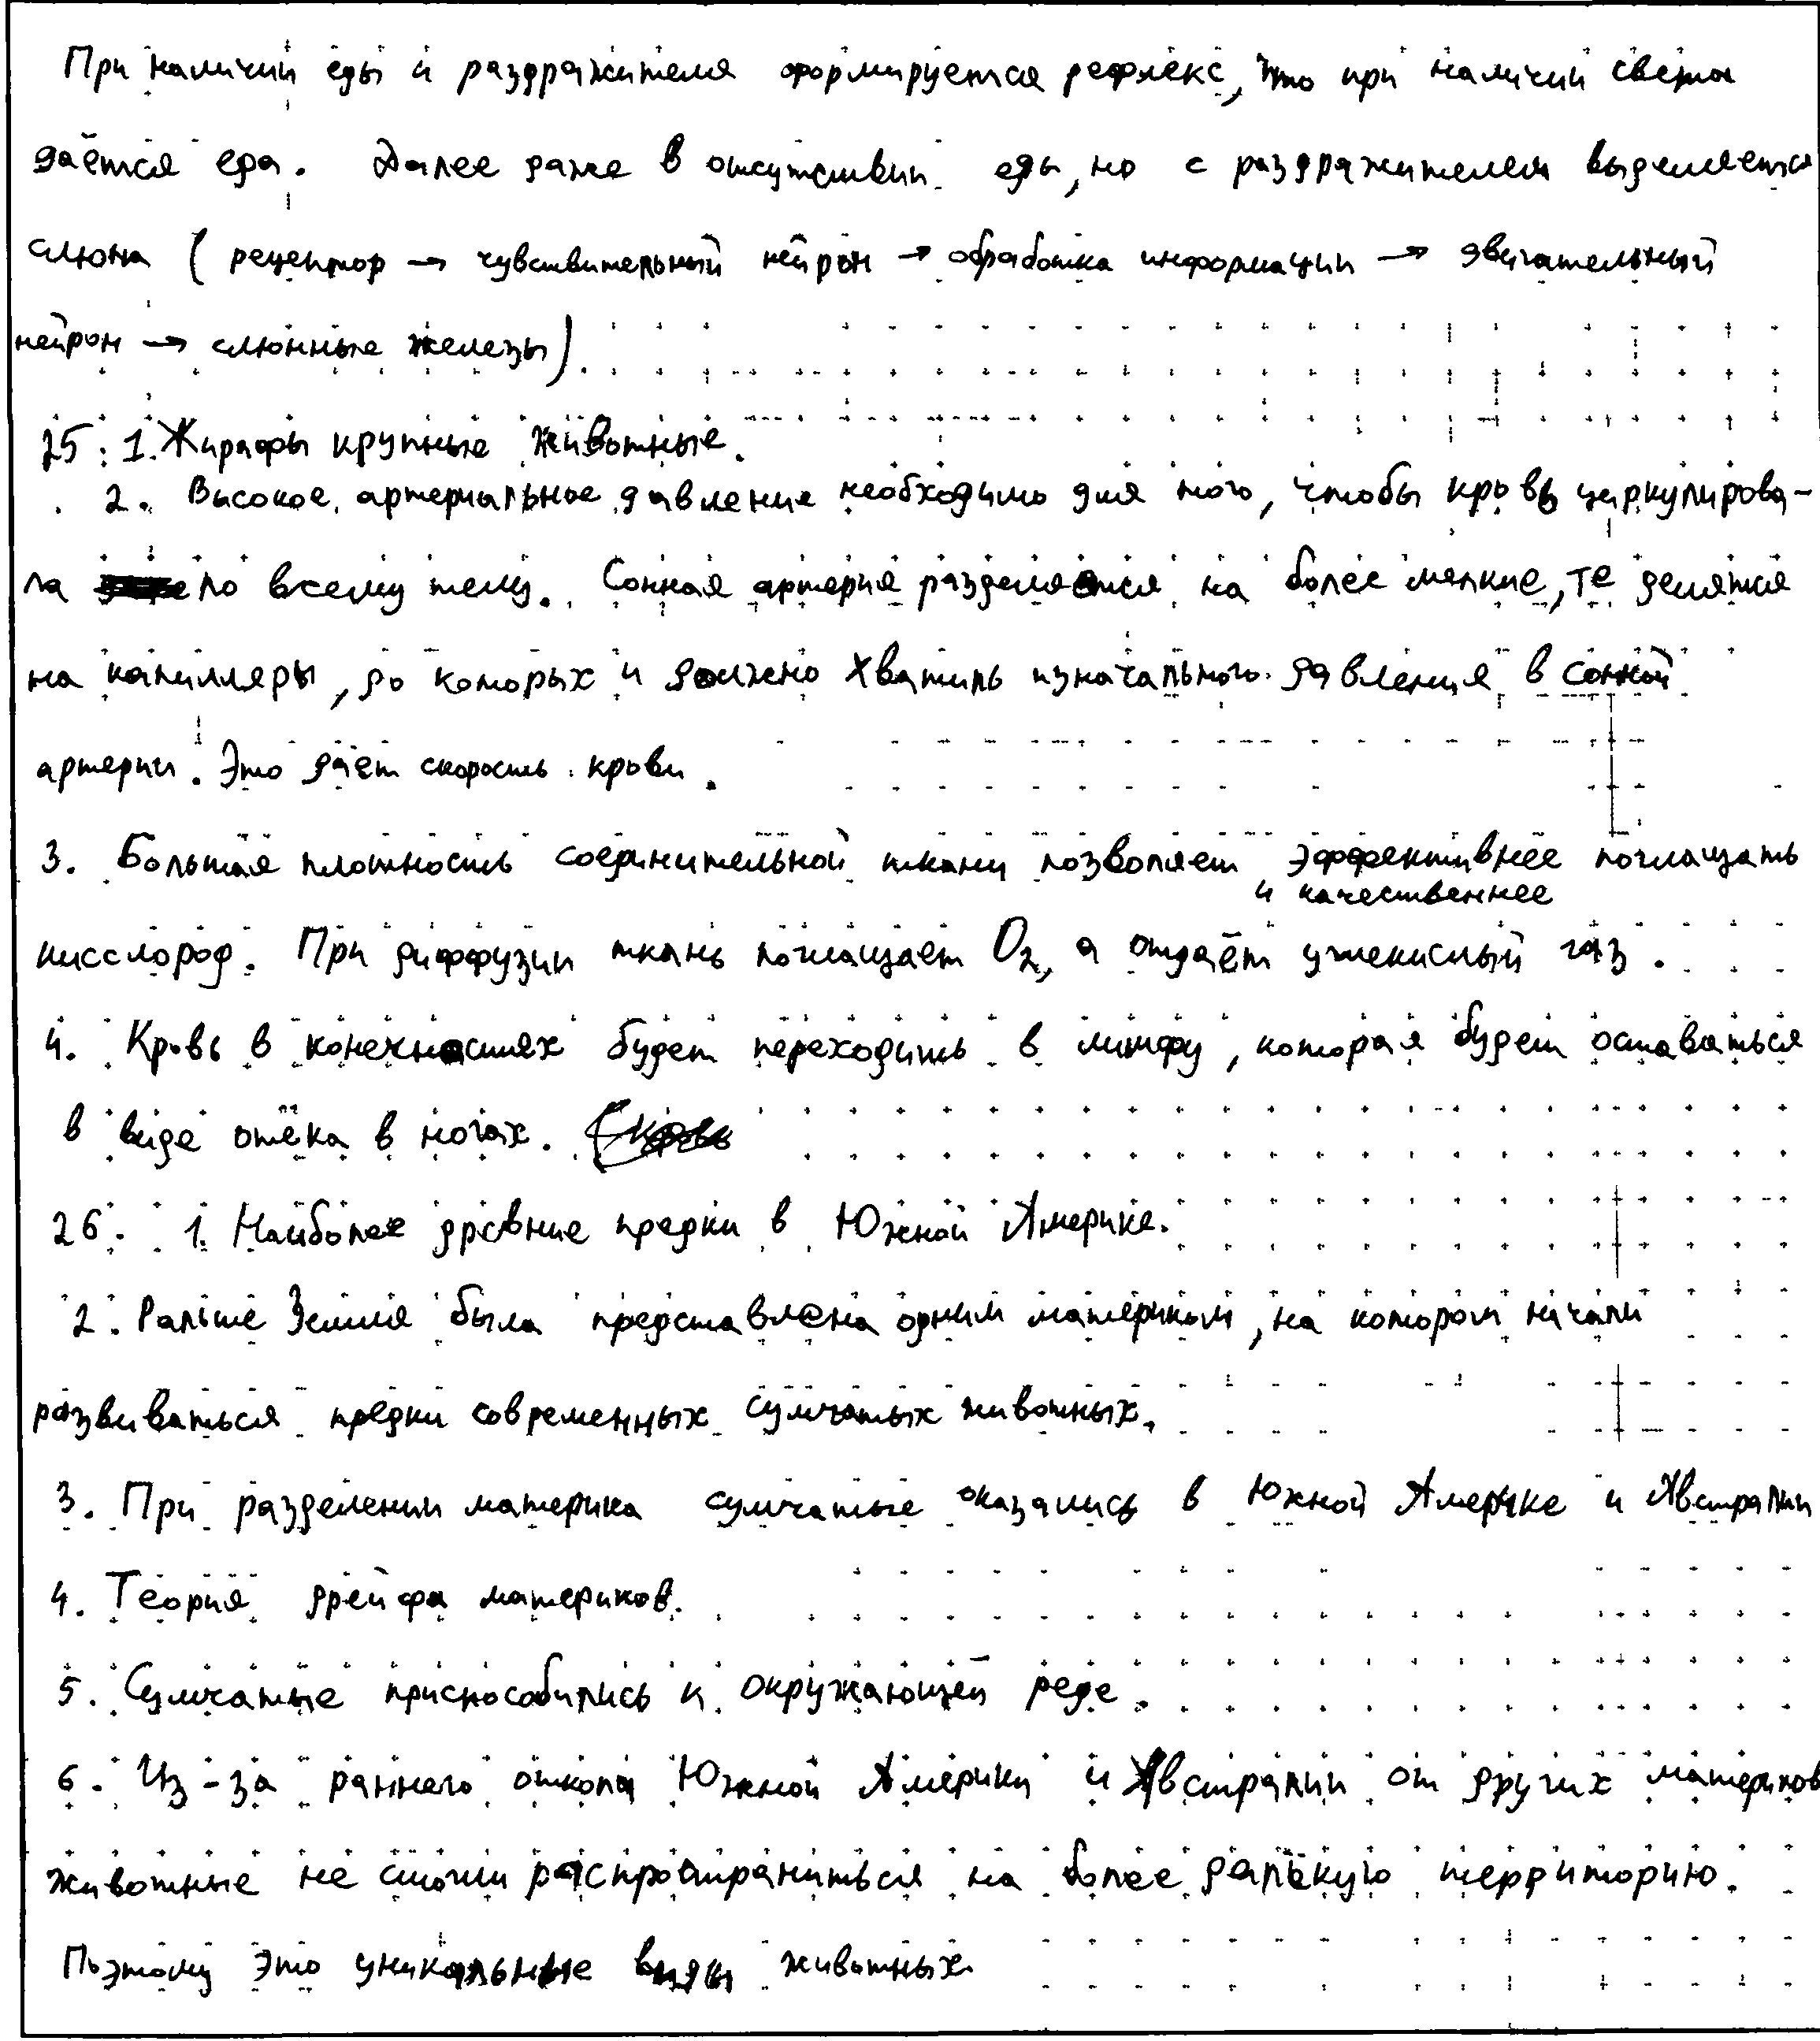 При наличии еды и раздражителя формируется рефлекс, что при наличии света
даётся еда. Далее даже в отсутствии еды, но с раздражителем выделяется
слюна (рецептор → чувствительный нейрон → обработка информации → двигательный
нейрон → слюнные железы).
25. 1. Жирафы крупные животные.
2. Высокое артериальное давление необходимо для того, чтобы кровь циркулирова-
ла по всему телу. Сонная артерия разделяется на более мелкие, те делятся
на капилляры, до которых и должно хватить изначального давления в сонной
артерии. Это даёт скорость крови.
3. Большая плотность соединительной ткани позволяет эффективнее поглощать
и качественнее
кисслород. При диффузии ткань поглощает O₂, а отдаёт углекислый газ.
4. Кровь в конечностях будет переходить в лимфу, которая будет оставаться
в виде отёка в ногах.
26. 1. Наиболее древние предки в Южной Америке.
2. Раньше Земля была представлена одним материком, на котором начали
развиваться предки современных сумчатых животных.
3. При разделении материка сумчатые оказались в Южной Америке и Австралии
4. Теория дрейфа материков.
5. Сумчатые приспособились к окружающей реде.
6. Из-за раннего откола Южной Америки и Австралии от других материков
животные не смогли распространиться на более далёкую территорию.
Поэтому это уникальные виды животных